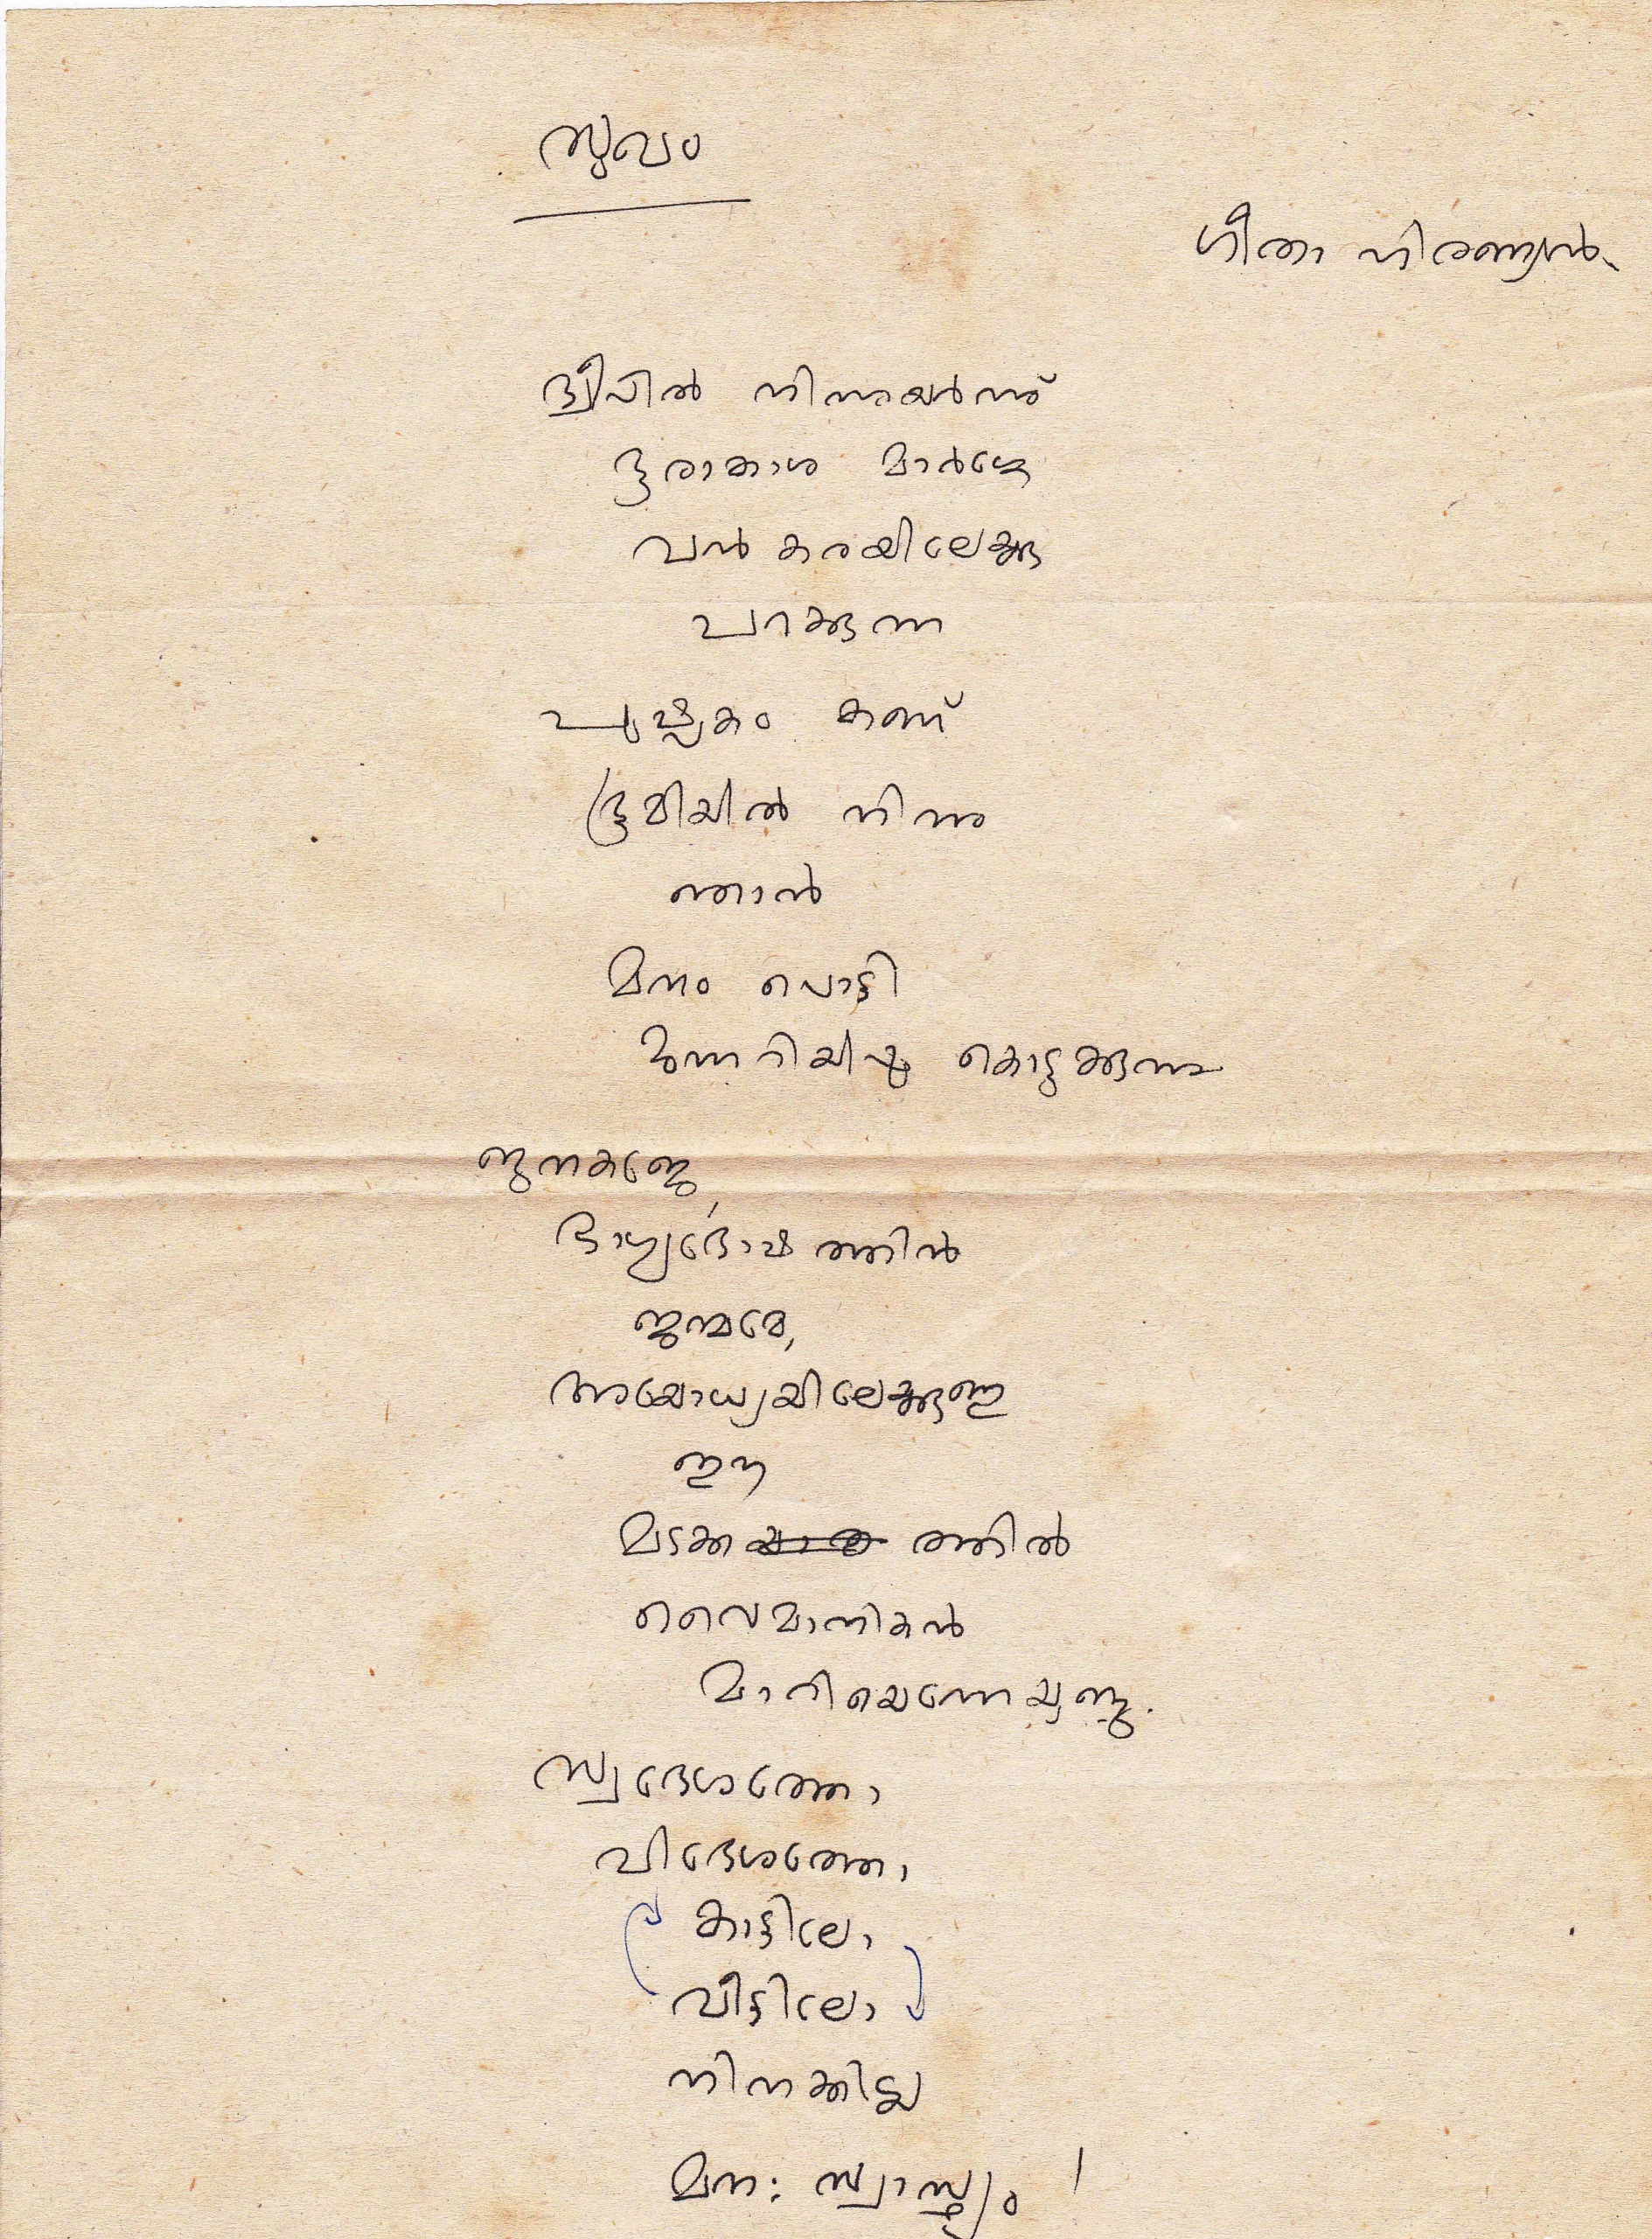 സുഖം
ഗീതാ ഹിരണ്യൻ
ദ്വീപിൽ നിന്നുയർന്ന്
ദൂരാകാശ മാർഗ്ഗേ
വൻ കരയിലേക്കു
പറക്കുന്ന
പുഷ്പകം കണ്ട്
ഭൂമിയിൽ നിന്നു
ഞാൻ
മനം പൊട്ടി
മുന്നറിയിപ്പു കൊടുക്കുന്നു
ജനകജേ,
ഭാഗ്യദോഷത്തിൻ
ജന്മമേ,
അയോധ്യയിലേക്കുള്ള
ഈ
മടക്ക ത്തിൽ
വൈമാനികൻ
മാറിയെന്നേയുള്ളു.
സ്വദേശത്തോ
വിദേശത്തോ
കാട്ടിലോ
വീട്ടിലോ
നിനക്കില്ല
മന: സ്വാസ്ഥ്യം !